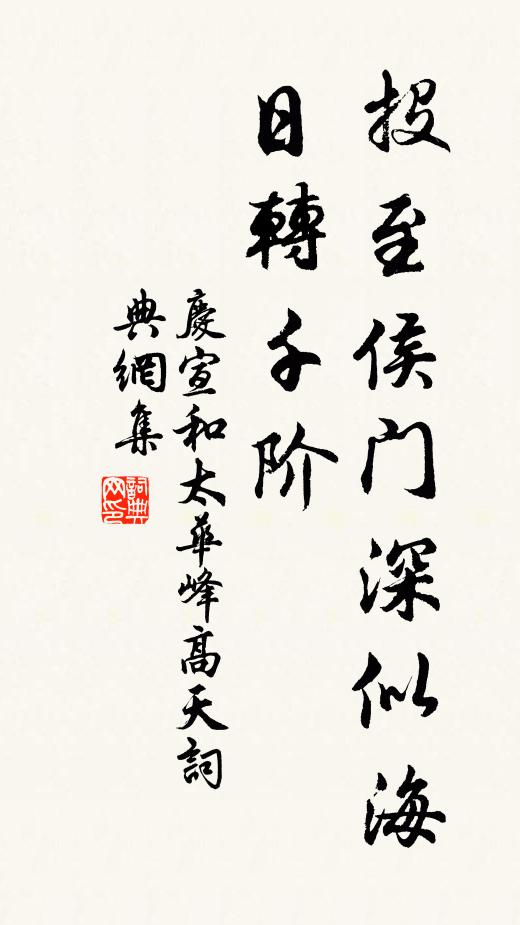 投至侯门深似海
日轉千阶
慶宣和太華峰高天詞
典網集
詞典网印